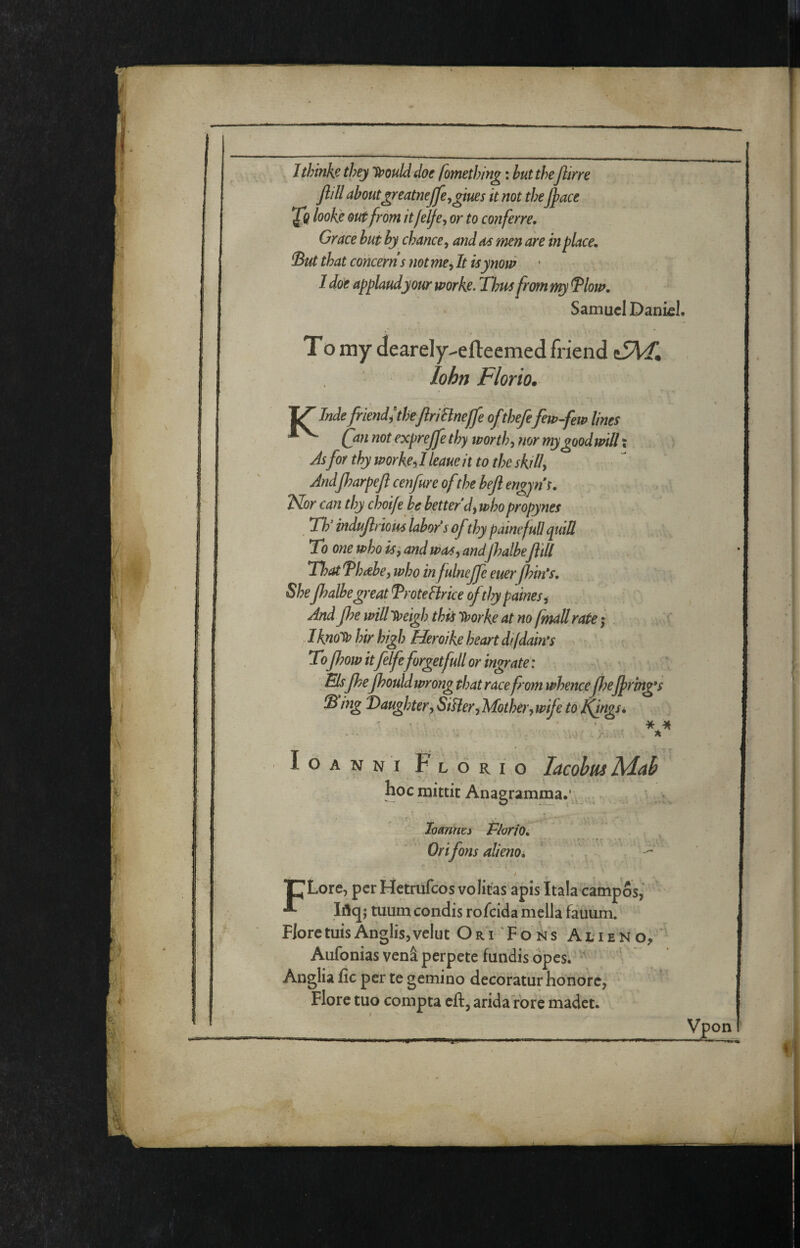 I thinke they would doe ſomething : but the ſtirre
ſtill about greatneſſe, giues it not the ſpace
To looke out from it ſelfe, or to conferre.
Grace but by chance, and as men are in place.
But that concern's not me, It is ynow
I doe applaud your worke. Thus from my Plow.
Samuel Daniel.
To my dearely-eſteemed friend M.
Iohn Florio.
KInde friend, the ſtrictneſſe of theſe few-few lines
Can not expreſſe thy worth, nor my good will:
As for thy worke, I leaue it to the skill,
And ſharpeſt cenſure of the beſt engyn's.
Nor can thy choiſe be better'd, who propynes
Th' induſtrious labor's of thy painefull quill
To one who is, and was, and ſhalbe ſtill
That Phæbe, who in fulneſſe euer ſhin's.
She ſhalbe great Protectrice of thy paines,
And ſhe will weigh this worke at no ſmall rate;
I know hir high Heroike heart diſdain's
To ſhow it ſelfe forgetfull or ingrate:
Els ſhe ſhould wrong that race from whence ſhe ſpring's
B'ing Daughter, Siſter, Mother, wife to Kings.
***
IOANNI FLORIO Iacobus Mab
hoc mittit Anagramma.
Ioannes Florio.
Ori fons alieno.
FLore, per Hetruſcos volitas apis Itala campos,
Iſtq; tuum condis roſcida mella fauum.
Flore tuis Anglis, velut ORI FONS ALIENO,
Auſonias venâ perpete fundis opes.
Anglia ſic per te gemino decoratur honore,
Flore tuo compta eſt, arida rore madet.
Vpon